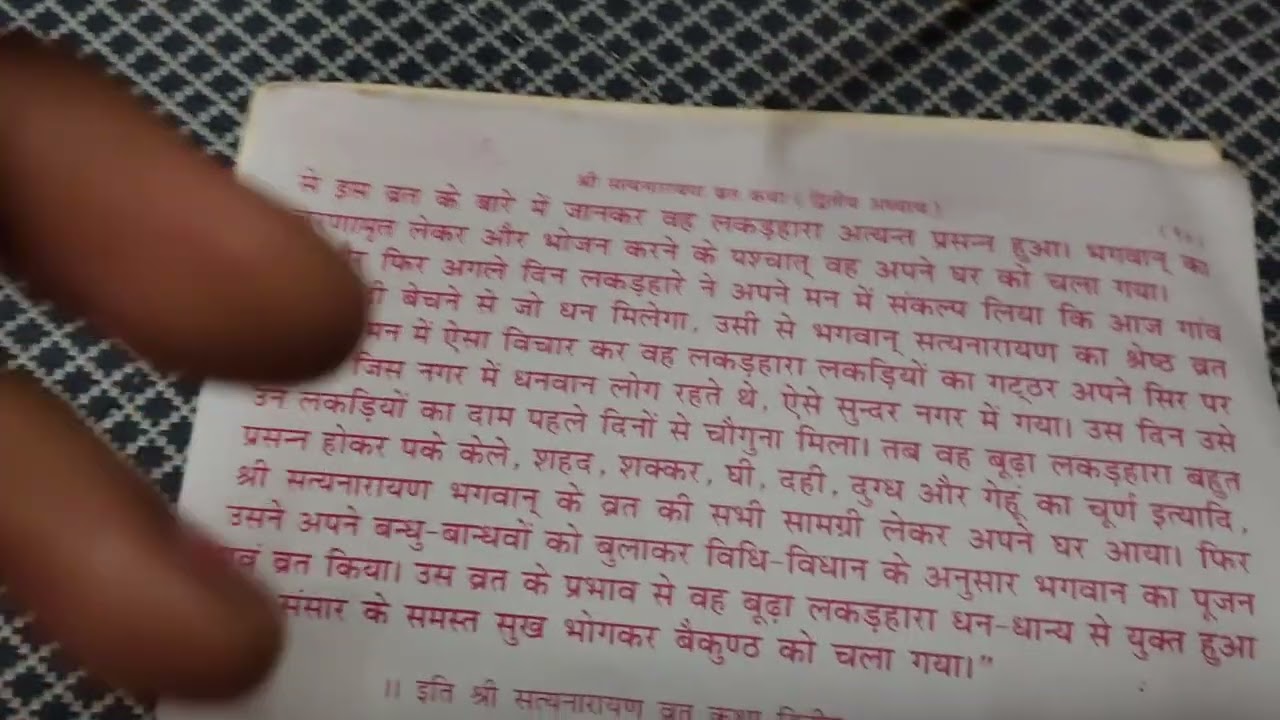 श्री सत्यनारायण व्रत कथा (द्वितीय अध्याय)
से इस व्रत के बारे में जानकर वह लकड़हारा अत्यन्त प्रसन्न हुआ। भगवान् का
लेकर और भोजन करने के पश्चात् वह अपने घर को चला गया।
फिर अगले दिन लकड़हारे ने अपने मन में संकल्प लिया कि आज गांव
बेचने से जो धन मिलेगा, उसी से भगवान् सत्यनारायण का श्रेष्ठ व्रत
मन में ऐसा विचार कर वह लकड़हारा लकड़ियों का गट्ठर अपने सिर पर
जिस नगर में धनवान लोग रहते थे, ऐसे सुन्दर नगर में गया। उस दिन उसे
उन लकड़ियों का दाम पहले दिनों से चौगुना मिला। तब वह बूढ़ा लकड़हारा बहुत
प्रसन्न होकर पके केले, शहद, शक्कर, घी, दही, दुग्ध और गेहूं का चूर्ण इत्यादि,
श्री सत्यनारायण भगवान् के व्रत की सभी सामग्री लेकर अपने घर आया। फिर
उसने अपने बन्धु-बान्धवों को बुलाकर विधि-विधान के अनुसार भगवान का पूजन
एवं व्रत किया। उस व्रत के प्रभाव से वह बूढ़ा लकड़हारा धन-धान्य से युक्त हुआ
संसार के समस्त सुख भोगकर बैकुण्ठ को चला गया।”
।। इति श्री सत्यनारायण व्रत कथा